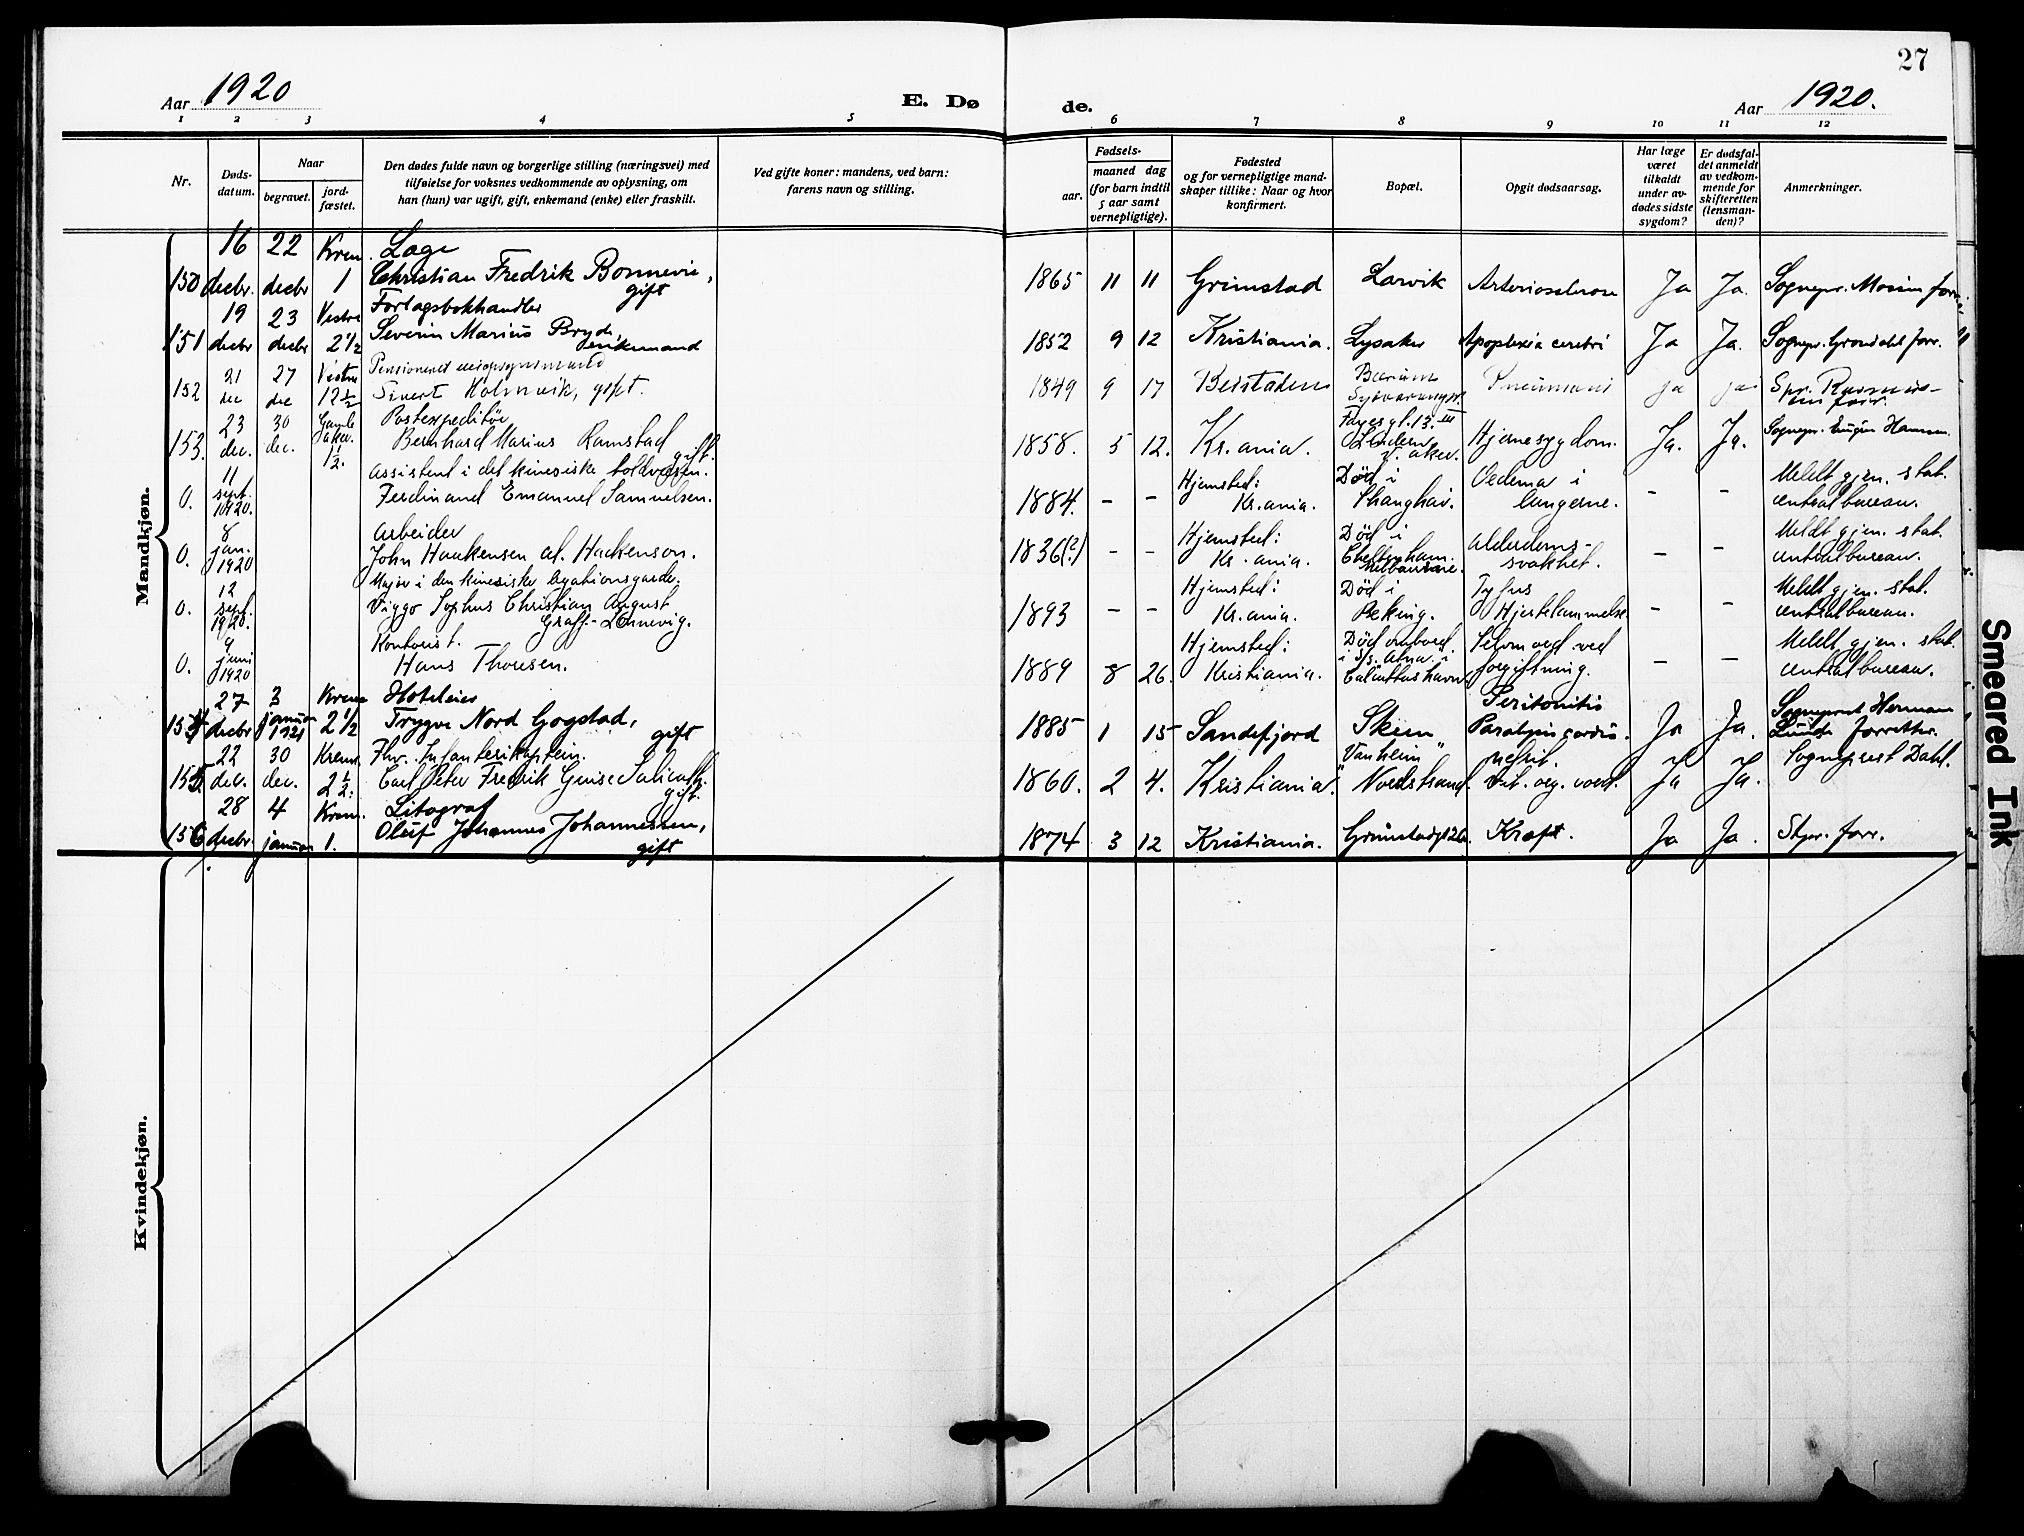 27
Aar 1920
E. Dø de.
Aar 1920.
1 2 3 4 5 6 7 8 9 10 11 12
Nr.
Døds-
datum.
Naar
begravet.
jord-
fæstet.
Den dødes fulde navn og borgerlige stilling (næringsvei) med
tilføielse for voksnes vedkommende av oplysning, om
han (hun) var ugift, gift, enkemand (enke) eller fraskilt.
Ved gifte koner: mandens, ved barn:
farens navn og stilling.
Fødsels-
aar.
maaned dag
(for barn indtil
5 aar samt
vernepligtige).
Fødested
og for vernepligtige mand-
skaper tillike: Naar og hvor
konfirmert.
Bopæl.
Opgit dødsaarsag.
Har læge
været
tilkaldt
under av-
dødes sidste
sygdom?
Er dødsfal-
det anmeldt
av vedkom-
mende for
skifteretten
(lensman-
den)?
Anmerkninger.
Mandkjøn.
16 22 Krem. Læge
150 decbr. decbr 1 Christian Fredrik Bonnevie, gift 1865 11 11 Grimstad Larvik Arteriosclerose Ja Ja. Sognepr. forr.
19 23 Vestre Forlagsbokhandler
151 decbr decbr 2 1/2 Severin Marius Bryde, enkemand 1852 9 12 Kristiania. Lysaker Apoplexia cerebri Ja Ja. Sognepr. Grøndahl forr.
21 27 Vestre Pensioneret
152 dec dec 12 1/2 Sivert Holmvik, gift. 1849 9 17 Beistaden Bærum Pneumoni ja ja Spr.
23 30 Gamle Postexpeditør
153. dec. dec. Aker. 1 1/2. Bernhard Marius Ramstad gift. 1858. 5 12. Kr.ania. v. aker. Hjernesygdom. Ja. Ja. Sognepr. Eugen Hansen.
11 Assistent i det kinesiske toldvæsen. Hjemsted: Død i Oedema i Meldt gjen. stat.
0. sept. 1920. Ferdinand Emanuel Samuelsen. 1884. – – Kr.ania. Shanghai. lungerne. – – centralbureau.
8 Arbeider Hjemsted: Død i Alderdoms- Meldt gjen. stat.
0. jan. 1920 John Haakensen al. Hackenson. 1836(?) – – Kr.ania. Cheltenham. Melbourne. svakhet. – – centralbureau.
12 Major i den kinesiske legationsgarde. Hjemsted: Død i Tyfus Meldt gjen. stat.
0. sept. 1920. Viggo Sophus Christian August 1893 – – Kr.ania. Peking. Hjertelammelse. – – centralbureau.
9 Kontorist. Hjemsted: Død ombord Selvmord ved Meldt gjen. stat.
0. juni 1920 Hans Thoresen. 1889 8 26. Kristiania. i S/s. Atna i Calcuttas havn. forgiftning. – – centralbureau.
27 3 Krem Hoteleier Peritonitis Sogneprest Herman
154 decbr januar 1921 2 1/2 Trygve Nord Gogstad, gift 1885 1 15 Sandefjord Skien Paralysis cordis. Ja Ja. Lunde forretter.
22 30 Krem. Fhv. Infanterikaptein. "Vanheim" Nefrit. Sogneprest Dahl.
155 dec. dec. 2 1/2. Carl Peter Fredrik gift. 1860. 2 4. Kristiania. Nordstrand. Vit. org. cord. Ja Ja.
28 4 Krem. Litograf
156 decbr. januar 1. Oluf Johannes Johannessen, gift 1874 3 12 Kristiania. Grünstadgt 26. Kræft. Ja Ja. Stpr. forr.
Kvindekjøn.
Smeared Ink